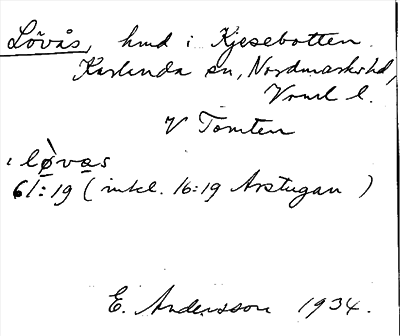 Lövås, hmd i Kjesebotten
Karlanda sn, Nordmarks hd,
Vrml l.
V Tomten
i lø̀vas
61:19 (inkl. 16:19 Arstugan)
E. Andersson 1934.